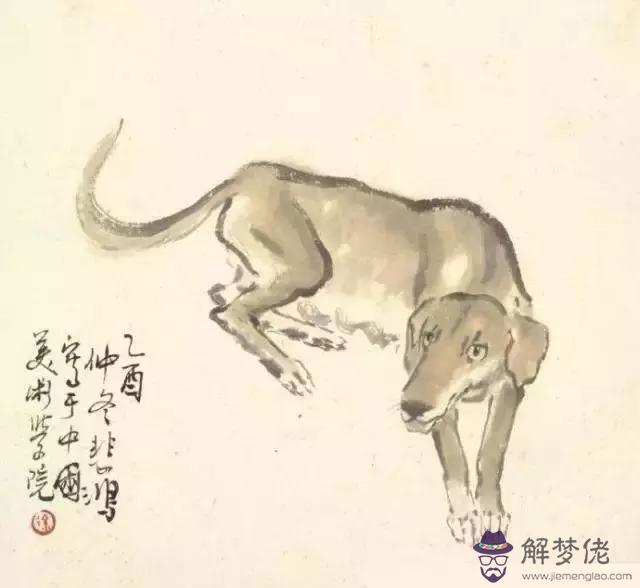 乙酉
仲冬悲鸿
写于中国
美术学院
徐
解梦佬
www.jiemenglao.com